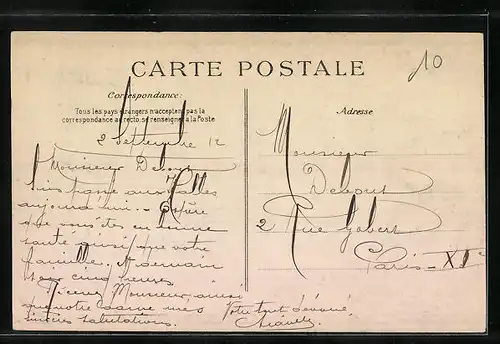 10
CARTE POSTALE
Correspondance:
Tous les pays étrangers n'acceptent pas la
correspondance au recto, se renseigner à la Poste
Adresse
2 Septembre 12
Monsieur Debout
Suis passé aux Halles
aujourd'hui. - 
que vous êtes en bonne
santé ainsi que votre
famille. A demain
cinq heures
Recevez Monsieur, ainsi
que votre dame mes
sincères salutations.
Votre tout dévoué
Monsieur
Debout
2 Rue Gobert
Paris - XIe